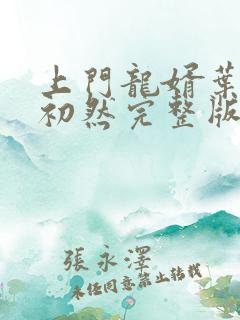 上門龍婿葉
初然完整版
張永澤
未经同意禁止转载